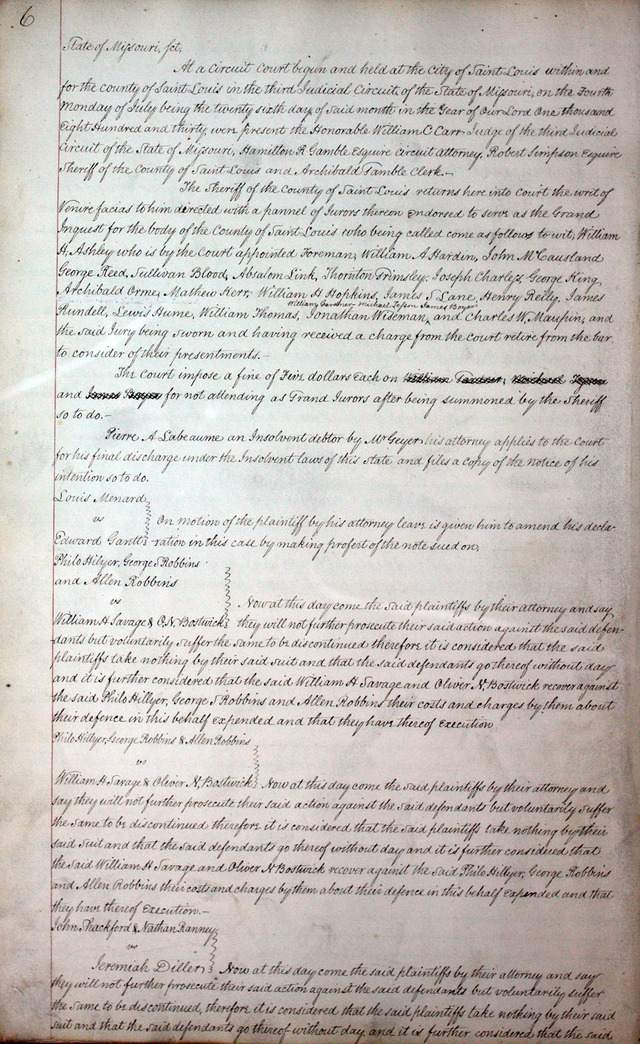 6
State of Missouri, sct.
At a Circuit Court begun and held at the City of Saint Louis within and
for the county of Saint Louis in the third Judicial Circuit of the State of Missouri, on the Fourth
Monday of July being the twenty sixth day of said month in the Year of Our Lord One thousand
Eight Hundred and thirty, were present the Honorable William C Carr Judge of the third Judicial
Circuit of the State of Missouri, Hamilton R Gamble Esquire Circuit attorney, Robert Simpson Esquire
Sheriff of the County of Saint Louis and Archibald Gamble Clerk.—
The Sheriff of the County of Saint Louis returns here into Court the writ of
Venire facias to him directed with a pannel of Jurors thereon Endorsed to serve as the Grand
Inquest for the body of the County of Saint Louis who being called come as follows to wit, William
H, Ashley who is by the Court appointed Foreman, William A Hardin, John McCausland
George Reed, Sullivan Blood, Absalom Link, Thornton Grimsley, Joseph Charless, George King,
Archibald Orme, Mathew Kerr, William H Hopkins, James S Lane, Henry Reily, James
William Gardner Michael Tesson James Boyer
Rundell, Lewis Hume, William Thomas, Jonathan Wiseman, and Charles W. Maupin, and
the said Jury being sworn and having received a charge from the court retire from the bar
to consider of their presentments.—
The Court impose a fine of Five dollars Each on William Gardner, Michael Tesson
and James Boyer for not attending as Grand Jurors after being summoned by the Sheriff
so to do.—
Pierre A Labeaume an Insolvent debtor by Mr Geyer his attorney applies to the Court
for his final discharge under the Insolvent laws of this state and files a copy of the notice of his
intention so to do.
Louis Menard
vs
On motion of the plaintiff by his attorney leave is given him to amend his decla-
Edward Gantt -ration in this case by making profert of the note sued on,
Philo Hillyer, George S Robbins
and Allen Robbins
vs
Now at this day come the said plaintiffs by their attorney and say
William H Savage & O. N. Bostwick they will not further prosecute their said action against the said defen-
dants but voluntarily suffer the same to be discontinued therefore it is considered that the said
plaintiffs take nothing by their said suit and that the said defendants go thereof without day
and it is further considered that the said William H Savage and Oliver N. Bostwick recover against
the said Philo Hillyer, George S Robbins and Allen Robbins their costs and charges by them about
their defence in this behalf expended and that they have thereof Execution
Philo Hillyer, George Robbins & Allen Robbins
vs
William H Savage & Oliver N. Bostwick Now at this day come the said plaintiffs by their attorney and
say they will not further prosecute their said action against the said defendants but voluntarily suffer
the same to be discontinued therefore it is considered that the said plaintiffs take nothing by their
said suit and that the said defendants go thereof without day and it is further considered that
the said William H Savage and Oliver N Bostwick recover against the said Philo Hillyer, George Robbins
and Allen Robbins their costs and charges by them about their defence in this behalf Expended and that
they have thereof Execution.—
John Shackford & Nathan Ranney
vs
Jeremiah Diller Now at this day come the said plaintiffs by their attorney and say
they will not further prosecute their said action against the said defendants but voluntarily suffer
the same to be discontinued, therefore it is considered that the said plaintiffs take nothing by their said
suit and that the said defendants go thereof without day and it is further considered, that the said